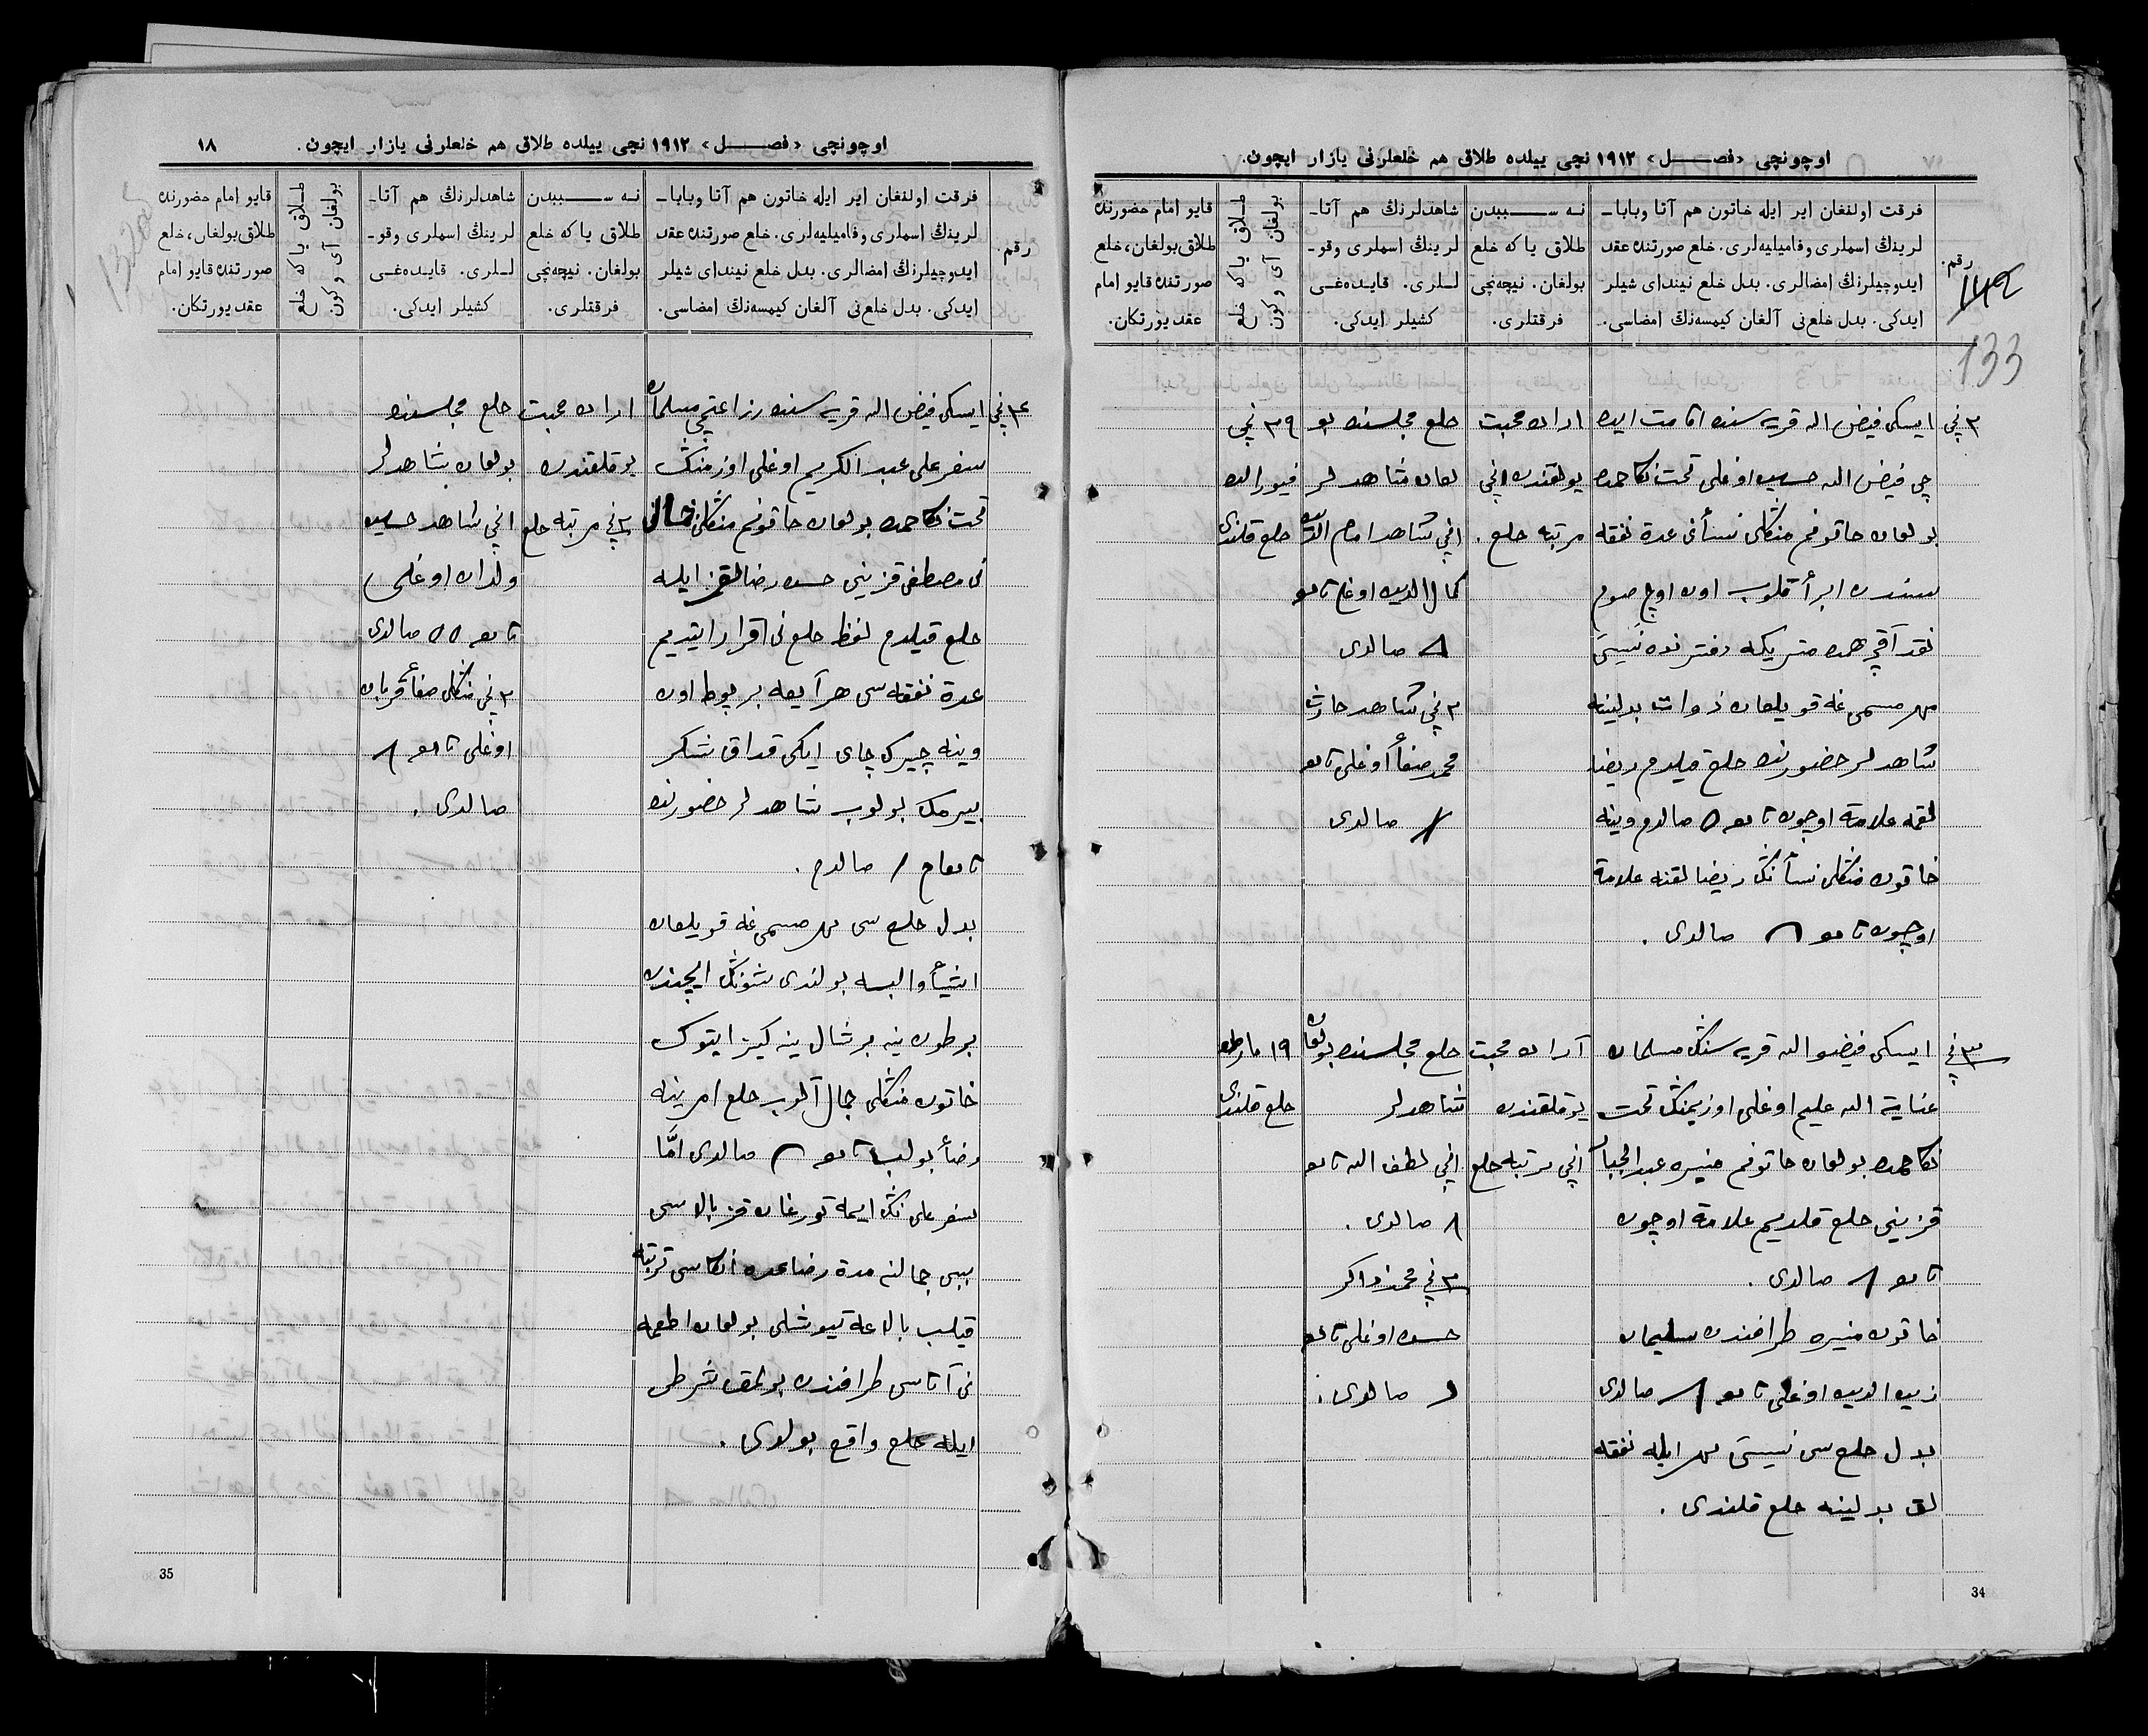 اوچونچی «فصــــل» ١٩١٢ نچی ییلده طلاق هم خلعلرنی یازار ایچون.
رقم.
فرقت اولنغان ایر ایله خاتون هم آتا وبابا-
لرینڭ اسملری وفامیلیه‌لری. خلع صورتنده عقد
ایدوچیلرنڭ امضالری. بدل خلع نیندای شیلر
ایدکی. بدل خلع‌نی آلغان کیمسه‌نڭ امضاسی.
نـه ســـــببدن
طلاق یا که خلع
بولغان. نیچه‌نچی
فرقتلری.
شاهدلرنڭ هم آتا-
لرینڭ اسملری وقو-
لــلری. قایــده‌غــی
کشیلر ایدکی.
طــلاق یا که خلع
بولغان آی و کون
قایو امام حضورنده
طلاق بولغان، خلع
صورتنده قایو امام
عقد یورتکان.
133
٢ نچی
ایسکی فیض الله قریه سنده اقامت ایده
چی فیض الله حسین اوغلی تحت نکاحمده
بولغان خاتونم منکلی نسأنی عدة نفقه
سندن ابرأ قلوب اون اوچ صوم
نقد آقچه همده متریکه دفترنده نسیئی
مهر مسمی غه قویلغان ذوات بدلینه
شاهدلر حضورنده خلع قیلدم ریضا
لقمه علامة اوچون تامغه صالدم وینه
خاتون منکلی نسأنڭ ریضالقنه علامة
اوچون تامغه صالدی.
اراده محبت
یولقندن انچی
مرتبه خلع.
خلع مجلسنده بو
لغان شاهدلر
انچی شاهد امام الدین
کمال الدین اوغلی تامغه
صالدی
٢ نچی شاهد حارث
محمد صفأ اوغلی تامغه
صالدی
٢٩ نچی
فیورالده
خلع قلندی
٣ نچی
ایسکی فیض الله قریه سنڭ مسلمان
عنایة الله علیم اوغلی اوزیمنڭ تحت
نکاحمده بولغان خاتونم منیره عبدالجبار
قزینی خلع قلدیم علامة اوچون
تامغه صالدی.
خاتون منیره طرافندن سلیمان
زین الدین اوغلی تامغه صالدی
بدل خلع سی نسیئی مهر ایله نفقه
لق بدلینه خلع قلندی.
آراده محبت
یوقلقندن
انچی مرتبه خلع
خلع مجلسنده بولغان
شاهدلر
انچی لطف الله تامغه
صالدی.
٢ نچی محمد ذاکر
حسن اوغلی تامغه
صالدی.
١٩ مارطه
خلع قلندی
34
اوچونچی «فصــــل» ١٩١٢ نچی ییلده طلاق هم خلعلرنی یازار ایچون.
١٨
رقم.
فرقت اولنغان ایر ایله خاتون هم آتا وبابا-
لرینڭ اسملری وفامیلیه‌لری. خلع صورتنده عقد
ایدوچیلرنڭ امضالری. بدل خلع نیندای شیلر
ایدکی. بدل خلع‌نی آلغان کیمسه‌نڭ امضاسی.
نـه ســـــببدن
طلاق یا که خلع
بولغان. نیچه‌نچی
فرقتلری.
شاهدلرنڭ هم آتا-
لرینڭ اسملری وقو-
لــلری. قایــده‌غــی
کشیلر ایدکی.
طــلاق یا که خلع
بولغان آی و کون
قایو امام حضورنده
طلاق بولغان، خلع
صورتنده قایو امام
عقد یورتکان.
٤ نچی
ایسکی فیض الله قریه سنده زراعتچی مسلمان
سفر علی عبد الکریم اوغلی اوزمنڭ
تحت نکاحمده بولغان خاتونم منکلی جمال
نی مصطفی قزینی حسن رضالقمز ایله
خلع قیلدم لفظ خلع نی اقرار ایتدیم
عدة نفقه سی هر آیغه بر پوط اون
وینه چیرک چای ایکی قداق شکر
بیرمک بولوب شاهدلر حضورنده
تامغام صالدم.
بدل خلع سی مهر مسمی غه قویلغان
اشیأ والبسه بولندی شونڭ ایچنده
بر طون ینه بر شال ینه کیز ایتوک
خاتون منکلی جمال آلوب خلع امرینه
رضأ بولب تامغه صالدی امّا
سفر علی نڭ ایمه تورغان قز بالاسی
بیبی جمالنه مدة رضاعده انکاسی تربیه
قیلب بالاغه تیوشلی بولغان اطعمه
نی آتاسی طرافندن بولمق شرطی
ایله خلع واقع بولدی.
اراده محبت
یوقلقندن
٢ نچی مرتبه خلع
خلع مجلسنده
بولغان شاهدلر
انچی شاهد حسین
ولدان اوغلی
تامغه صالدی
٢ نچی منکلی صفأ قربان
اوغلی تامغه
صالدی.
35